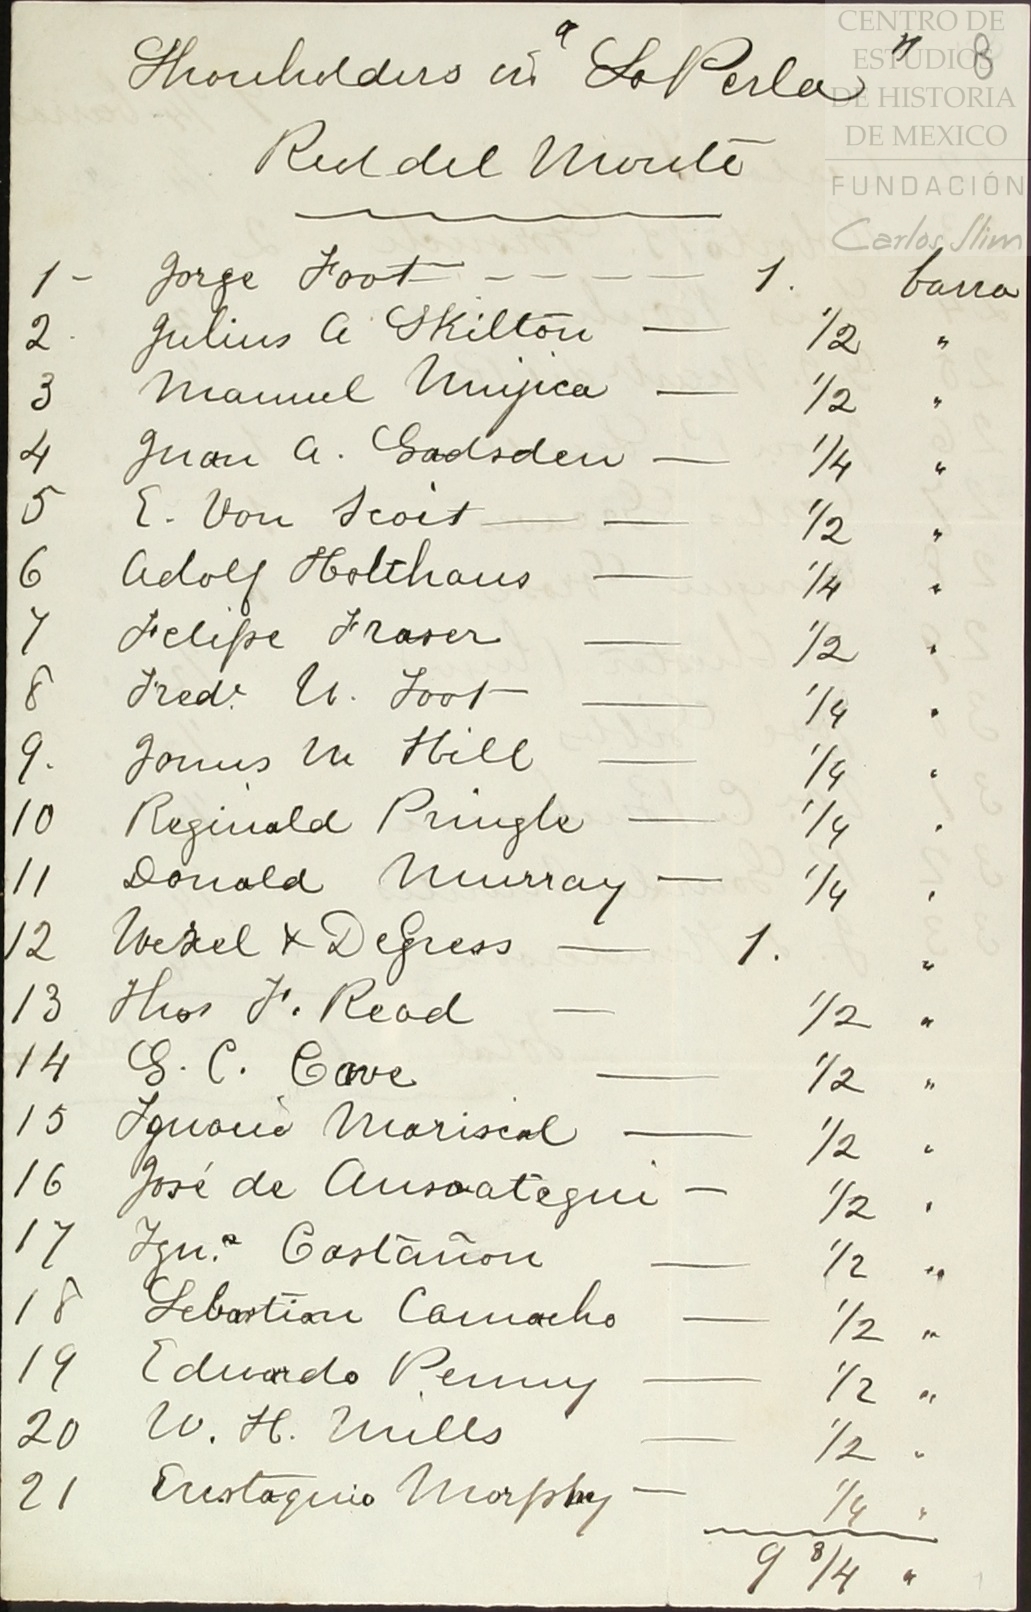 CENTRO DE
ESTUDIOS
DE HISTORIA
DE MEXICO
FUNDACIÓN
Carlos Slim
8
Shareholders in "La Perla"
Real del Monte
1 - Jorge Foot - - - - 1. barra
2. Julius A Skilton — 1/2 "
3 Manuel Mujica — 1/2 "
4 Juan A. Gadsden — 1/4 "
5 E. Von — — 1/2 "
6 Adolf Holthaus — 1/4 "
7 Felipe Fraser — 1/2 "
8 Fredk W. Foot — 1/4 "
9. M Hill — 1/4 "
10 Reginald Pringle — 1/4 "
11 Donald Murray — 1/4 "
12 Wexel & DeGress — 1. "
13 Thos F. Read — 1/2 "
14 G. C. Cave — 1/2 "
15 Ignacio Mariscal — 1/2 "
16 José de Ansoategui — 1/2 "
17 Ign.o Castañon — 1/2 "
18 Sebastian Camacho — 1/2 "
19 Eduardo Penny — 1/2 "
20 W. H. Mills — 1/2 "
21 Eustaquio Morphy — 1/4 "
9 3/4 "